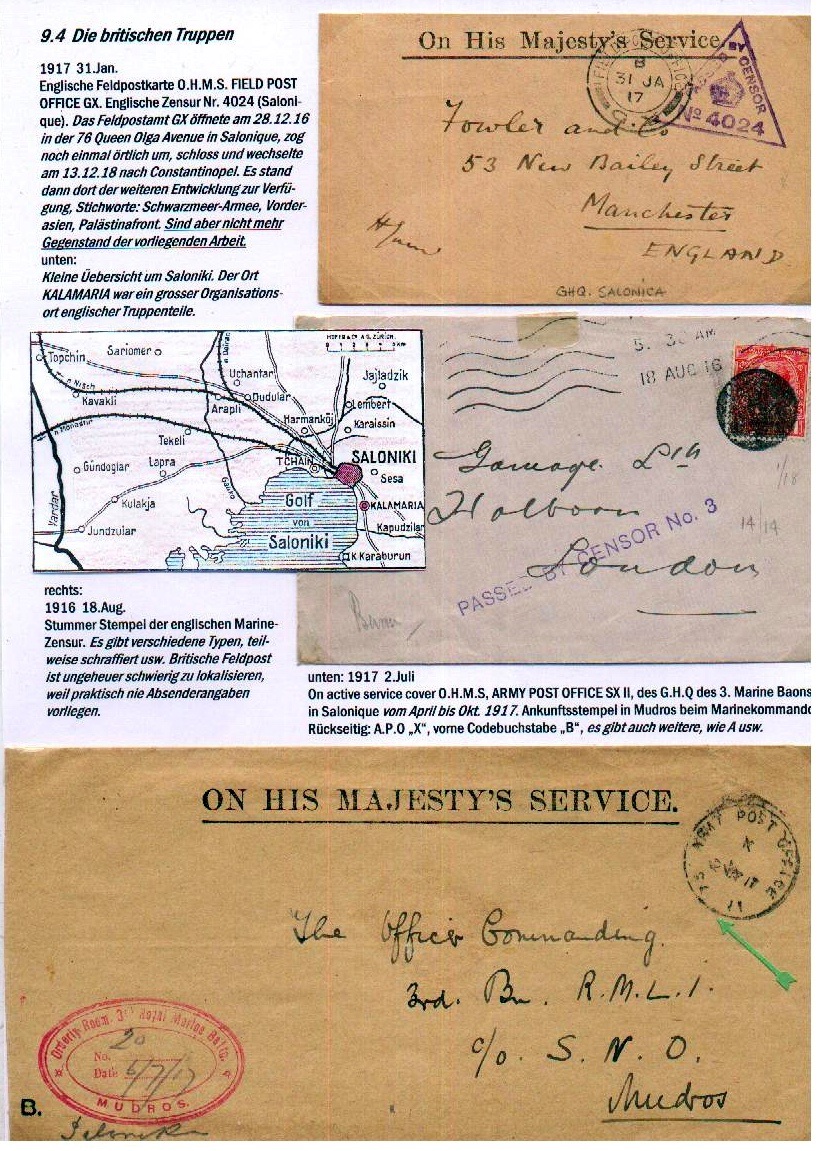 9.4 Die britischen Truppen
1917 31.Jan.
Englische Feldpostkarte O.H.M.S. FIELD POST
OFFICE GX. Englische Zensur Nr. 4024 (Saloni-
que). Das Feldpostamt GX öffnete am 28.12.16
in der 76 Queen Olga Avenue in Salonique, zog
noch einmal örtlich um, schloss und wechselte
am 13.12.18 nach Constantinopel. Es stand
dann dort der weiteren Entwicklung zur Verfü-
gung, Stichworte: Schwarzmeer-Armee, Vorder-
asien, Palästinafront. Sind aber nicht mehr
Gegenstand der vorliegenden Arbeit.
unten:
Kleine Üebersicht um Saloniki. Der Ort
KALAMARIA war ein grosser Organisations-
ort englischer Truppenteile.
On His Majesty's Service.
31 JA
17
BY CENSOR
No 4024
Fowler and Co
53 New Bailey Street
Manchester
ENGLAND
GHQ. SALONICA
Topchin
Sariomer
n. Doiran
Uchantar
Jajladzik
n. Nisch
Kavakli
Arapli
Dudular
Lembert
Harmanköj
Karaissin
n. Monastir
Tekeli
SALONIKI
TCHAIN
Gündoglar
Lapra
Sesa
Kulakja
Golf
von
Saloniki
KALAMARIA
Vardar
Jundzular
Kapudzilar
K. Karaburun
5. 30 AM
18 AUG 16
Gamage Ltd
Holborn
London
PASSED BY CENSOR No. 3
1/18
14/14
rechts:
1916 18.Aug.
Stummer Stempel der englischen Marine-
Zensur. Es gibt verschiedene Typen, teil-
weise schraffiert usw. Britische Feldpost
ist ungeheuer schwierig zu lokalisieren,
weil praktisch nie Absenderangaben
vorliegen.
unten: 1917 2.Juli
On active service cover O.H.M.S, ARMY POST OFFICE SX II, des G.H.Q des 3. Marine Baons
in Salonique vom April bis Okt. 1917. Ankunftsstempel in Mudros beim Marinekommando
Rückseitig: A.P.O „X“, vorne Codebuchstabe „B“, es gibt auch weitere, wie A usw.
ON HIS MAJESTY'S SERVICE.
ARMY POST OFFICE
X
17
The Officer Commanding.
3rd. Bn. R.M.L.I.
c/o. S. N. O.
Mudros
Orderly Room, 3rd Royal Marine Battn.
No. 20
Date 6/7/17
MUDROS.
B.
Salonika